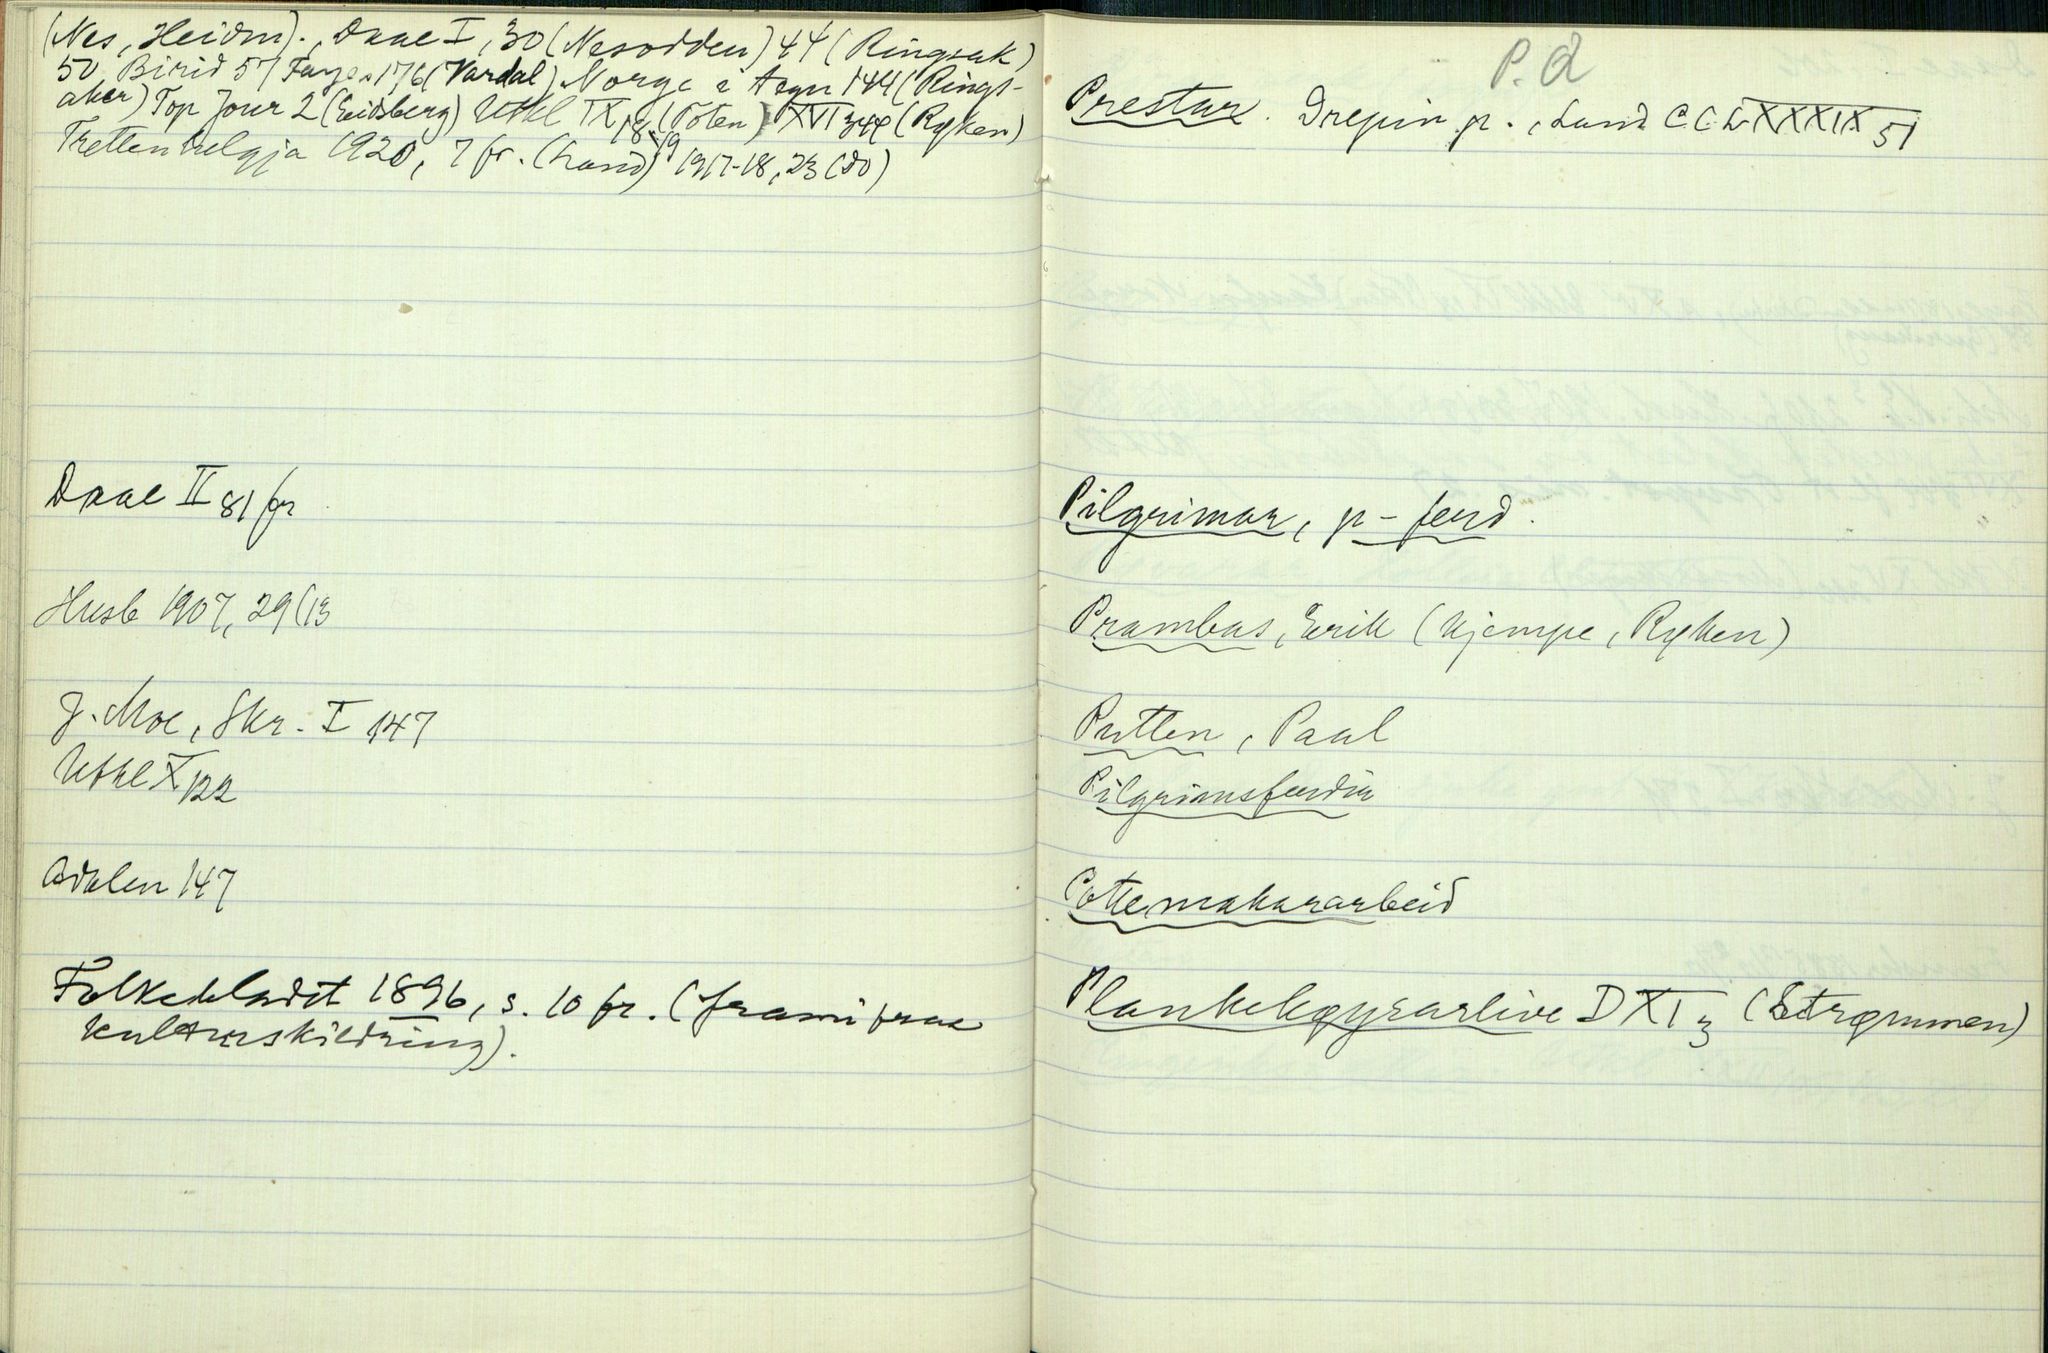 (Nes, Heidm)., Daae I, 30 (Nesodden) 44 (Ringsak)
50, Birid 57 Faye 176 (Vardal) Norge i 144 (Rings-
aker) Top Jour 2 (Eidsberg) Utkl IX 18 (Toten) XVI 344 (Ryken)
Trettenhelgja 1920, 7 fr. (Land) 1917-18, 23 (do)
Daae II 81 fr
Husb 1907, 29/13
J. Moe, Skr. I 147
Utkl X 122
Adalen 147
Folkebladet 1896, s. 10 fr. (framifraa
kulturskildring).
P. Q
Prestar. Drepin p., Land CCLXXXIX 51
Pilgrimar, p-ferd.
Prambus, Erik (kjempe, Ryken)
Putten, Paal
Pilgrimsferdir
Pottemakararbeid
Plankekøyrarlive D XI 3 (Strømmen)